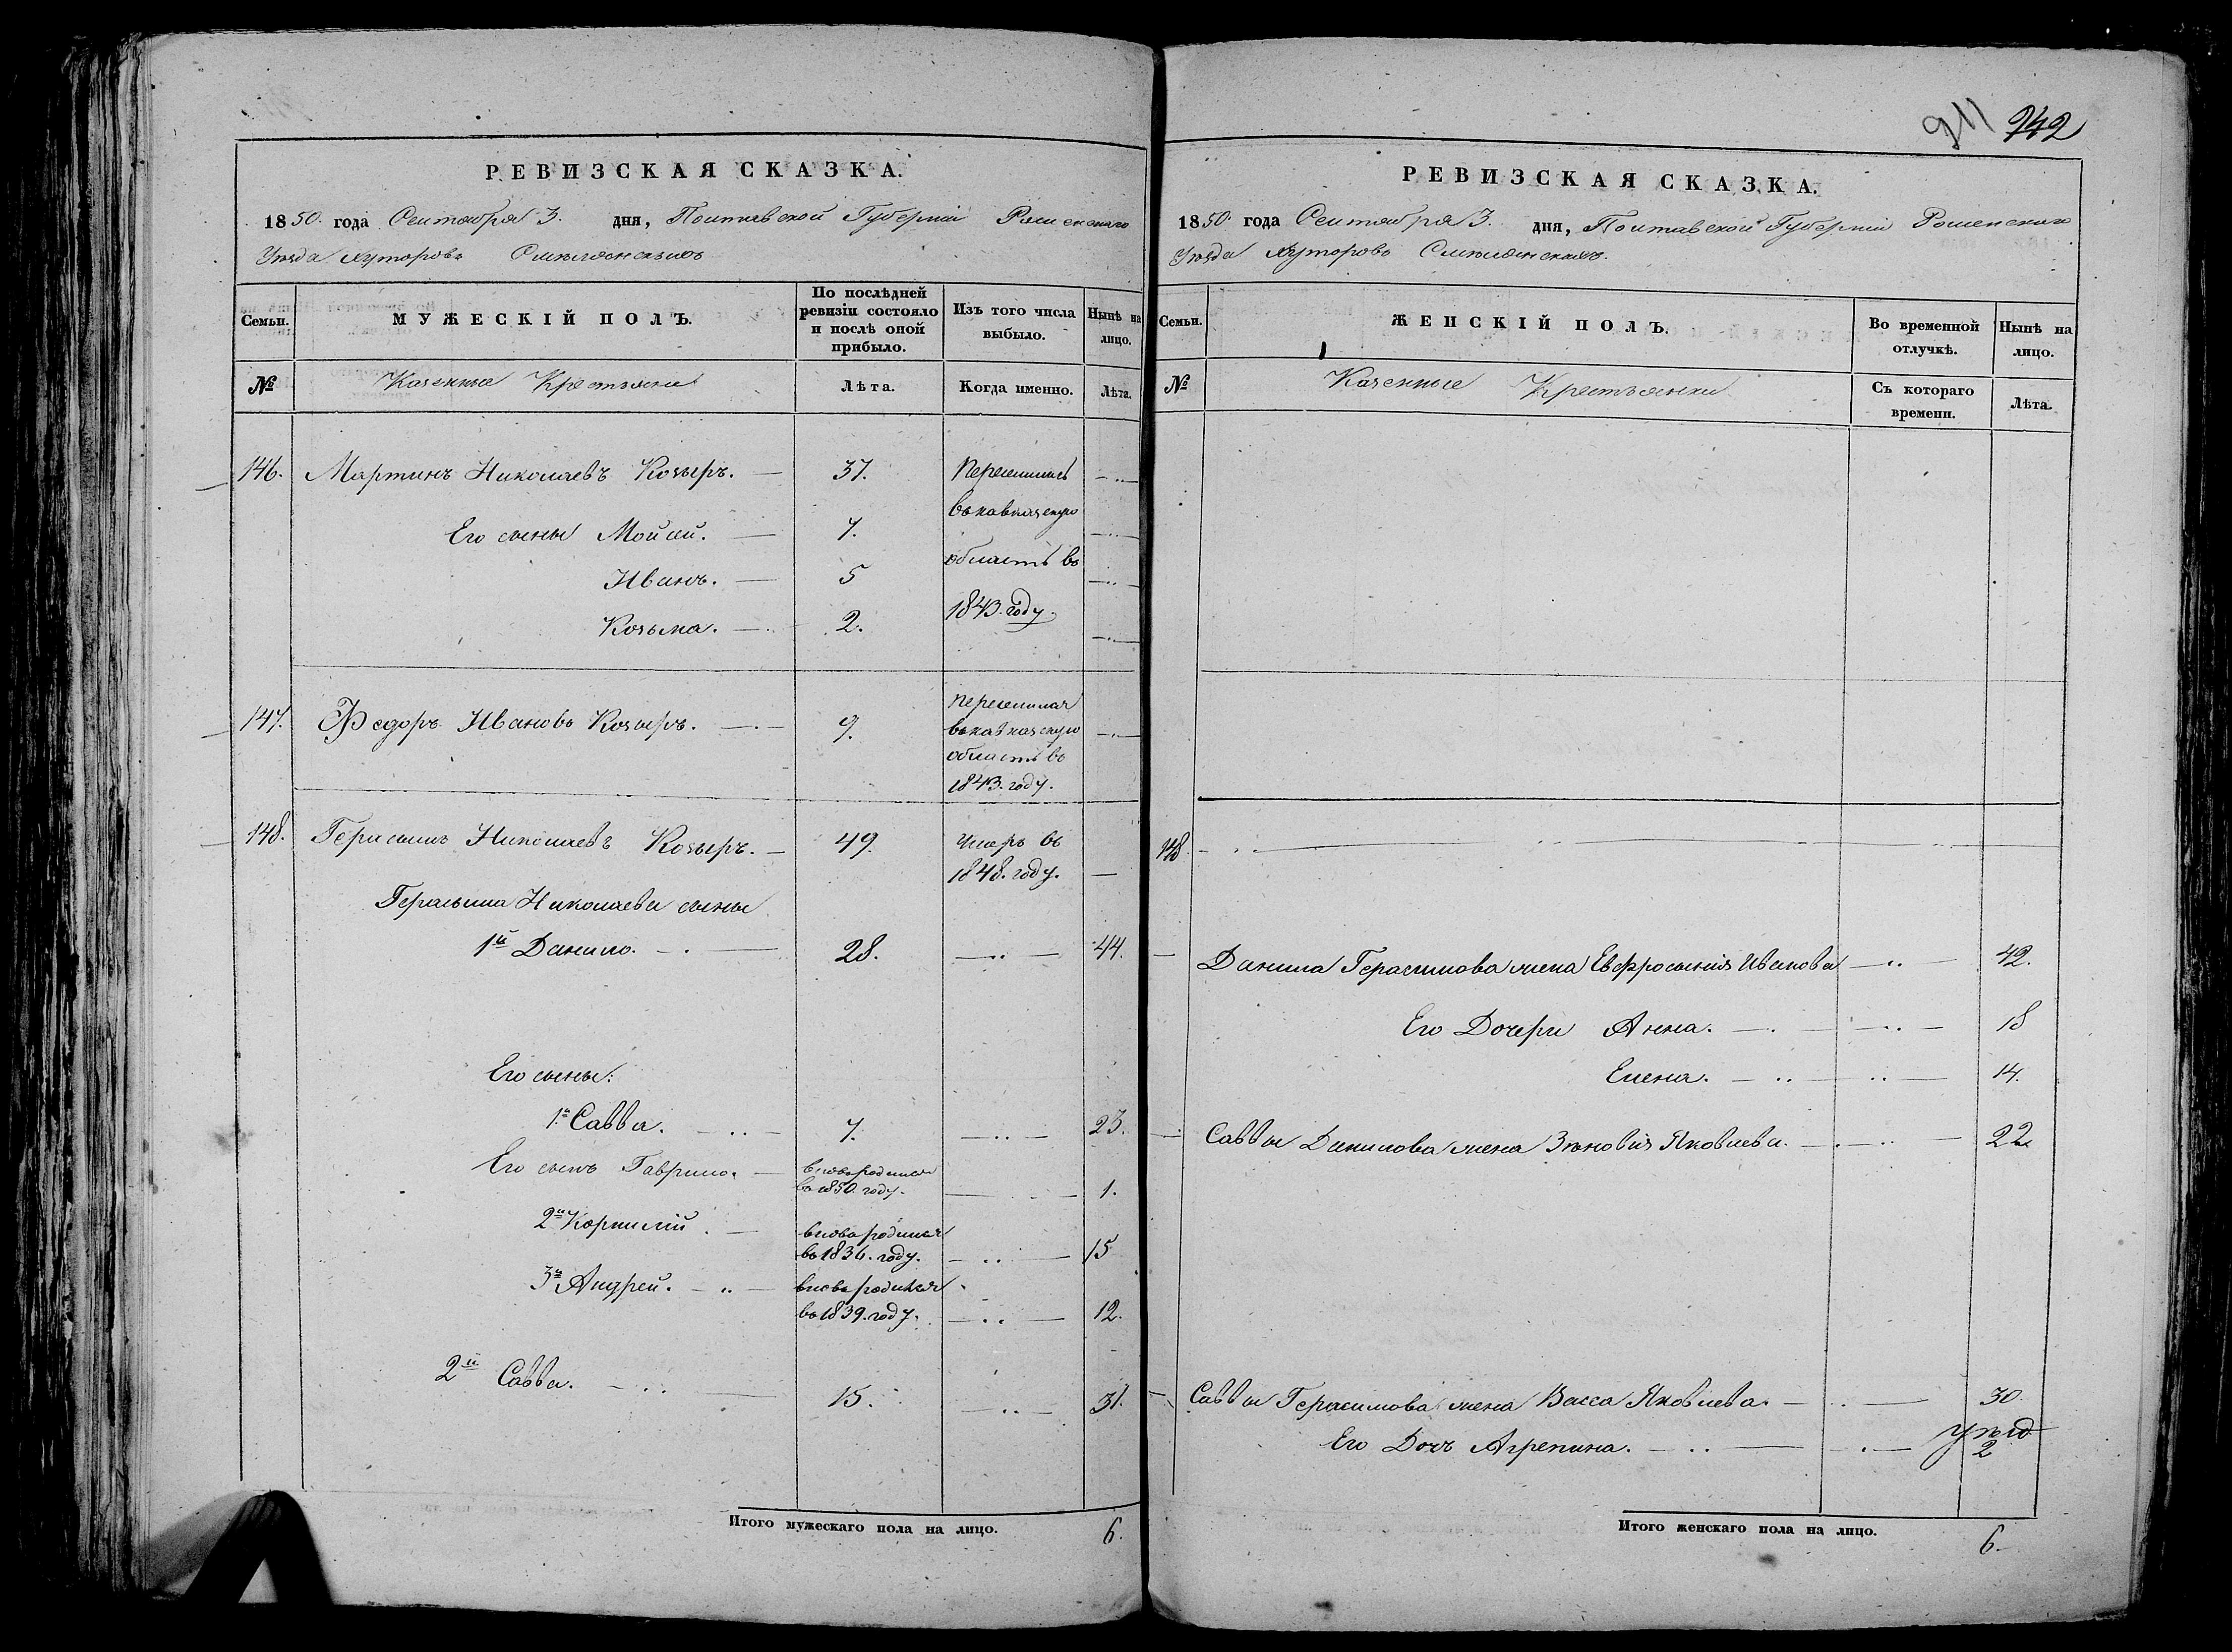 РЕВИЗСКАЯ СКАЗКА.
1850. года Сентября 3. дня, Полтавской Губерніи Роменскаго
Уѣзда Хуторовъ Смѣлянскихъ
Семьи.
МУЖЕСКІЙ ПОЛЪ.
По послѣдней ревизіи состояло и послѣ оной прибыло.
Изъ того числа выбыло.
Нынѣ на лицо.
№
Казенные Крестьяне
Лѣта.
Когда именно.
Лѣта.
146. Мартинъ Николаевъ Козыръ. 37. Переселились
въ кавказскую
Его сыны Мойсей. 7.
область въ
Иванъ. 5
1843. году.
Козьма. 2.
147. Федоръ Ивановъ Козыръ. 9. Переселился
въ кавказскую
область въ
1843. году.
148. Герасимъ Николаевъ Козыръ. 49. Умеръ въ
1848. году.
Герасима Николаева сыны
1й Данило. 28. 44.
Его сыны:
1й Савва. 7. 23.
Его сынъ Гаврило. вновь родился
въ 1850. году. 1.
2й Корнилій. вновь родился
въ 1836. году. 15
3й Андрей. вновь родился
въ 1839. году. 12.
2й Савва. 15. 31.
Итого мужескаго пола на лицо. 6.
911 942
РЕВИЗСКАЯ СКАЗКА.
1850. года Сентября 3. дня, Полтавской Губерніи Роменскаго
Уѣзда Хуторовъ Смѣлянскихъ.
Семьи.
ЖЕНСКІЙ ПОЛЪ.
Во временной отлучкѣ.
Нынѣ на лицо.
№
Казенные Крестьянки
Съ котораго времени.
Лѣта.
148.
Данила Герасимова жена Евфросинія Иванова 42.
Его Дочери Анна. 18
Елена. 14.
Саввы Данилова жена Зѣновія Яковлева. 22
Саввы Герасимова жена Васса Яковлева. 30.
Его Дочь Агрепина. 2
Итого женскаго пола на лицо. 6.